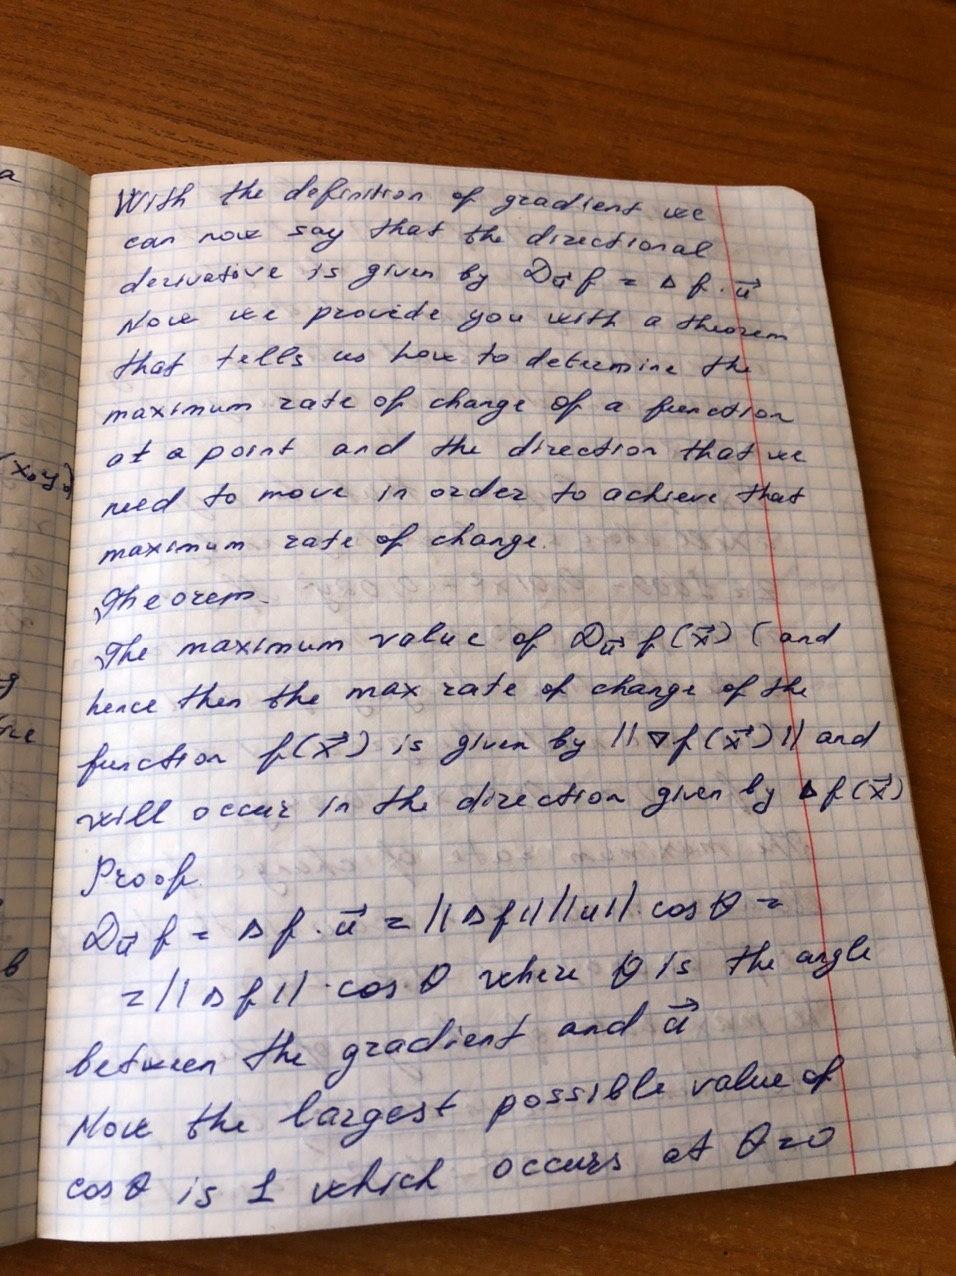 With the definition of gradient we
can now say that the directional
derivative is given by D_u⃗ f = Δ f · u⃗
Now we provide you with a theorem
that tells us how to determine the
maximum rate of change of a function
at a point and the direction that we
need to move in order to achieve that
maximum rate of change.
Theorem.
The maximum value of D_u⃗ f(x⃗) (and
hence then the max rate of change of the
function f(x⃗) is given by ||∇f(x⃗)|| and
will occur in the direction given by Δf(x⃗)
Proof.
D_u⃗ f = Δ f · u⃗ = ||Δ f|| ||u|| · cos θ =
= ||Δ f|| · cos θ where θ is the angle
between the gradient and u⃗
Now the largest possible value of
cos θ is 1 which occurs at θ=0